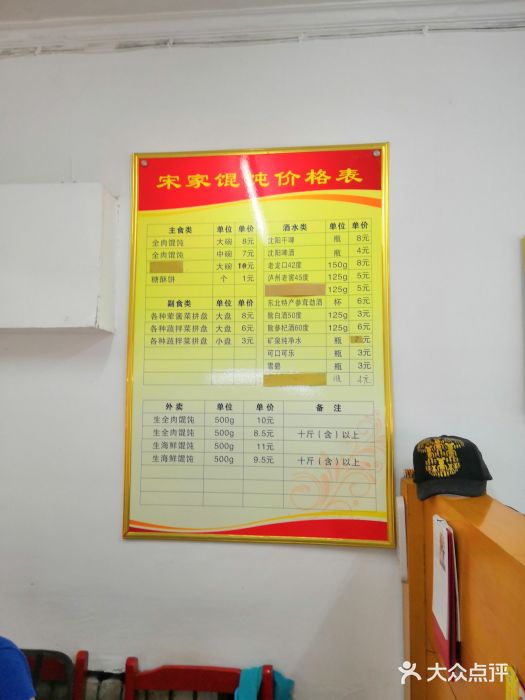 宋家馄饨价格表
主食类 单位 单价
全肉馄饨 大碗 8元
全肉馄饨 中碗 7元
大碗 10元
糖酥饼 个 1元
副食类 单位 单价
各种荤酱菜拼盘 大盘 8元
各种蔬拌菜拼盘 大盘 6元
各种蔬拌菜拼盘 小盘 3元
酒水类 单位 单价
沈阳干啤 瓶 8元
沈阳啤酒 瓶 4元
老龙口42度 150g 8元
泸州老窖45度 125g 5元
125g 5元
东北特产参茸劲酒 杯 6元
散白酒50度 125g 3元
散参杞酒60度 125g 6元
矿泉纯净水 瓶 元
可口可乐 瓶 3元
雪碧 瓶 3元
瓶 4元
外卖 单位 单价 备注
生全肉馄饨 500g 10元
生全肉馄饨 500g 8.5元 十斤（含）以上
生海鲜馄饨 500g 11元
生海鲜馄饨 500g 9.5元 十斤（含）以上
大众点评